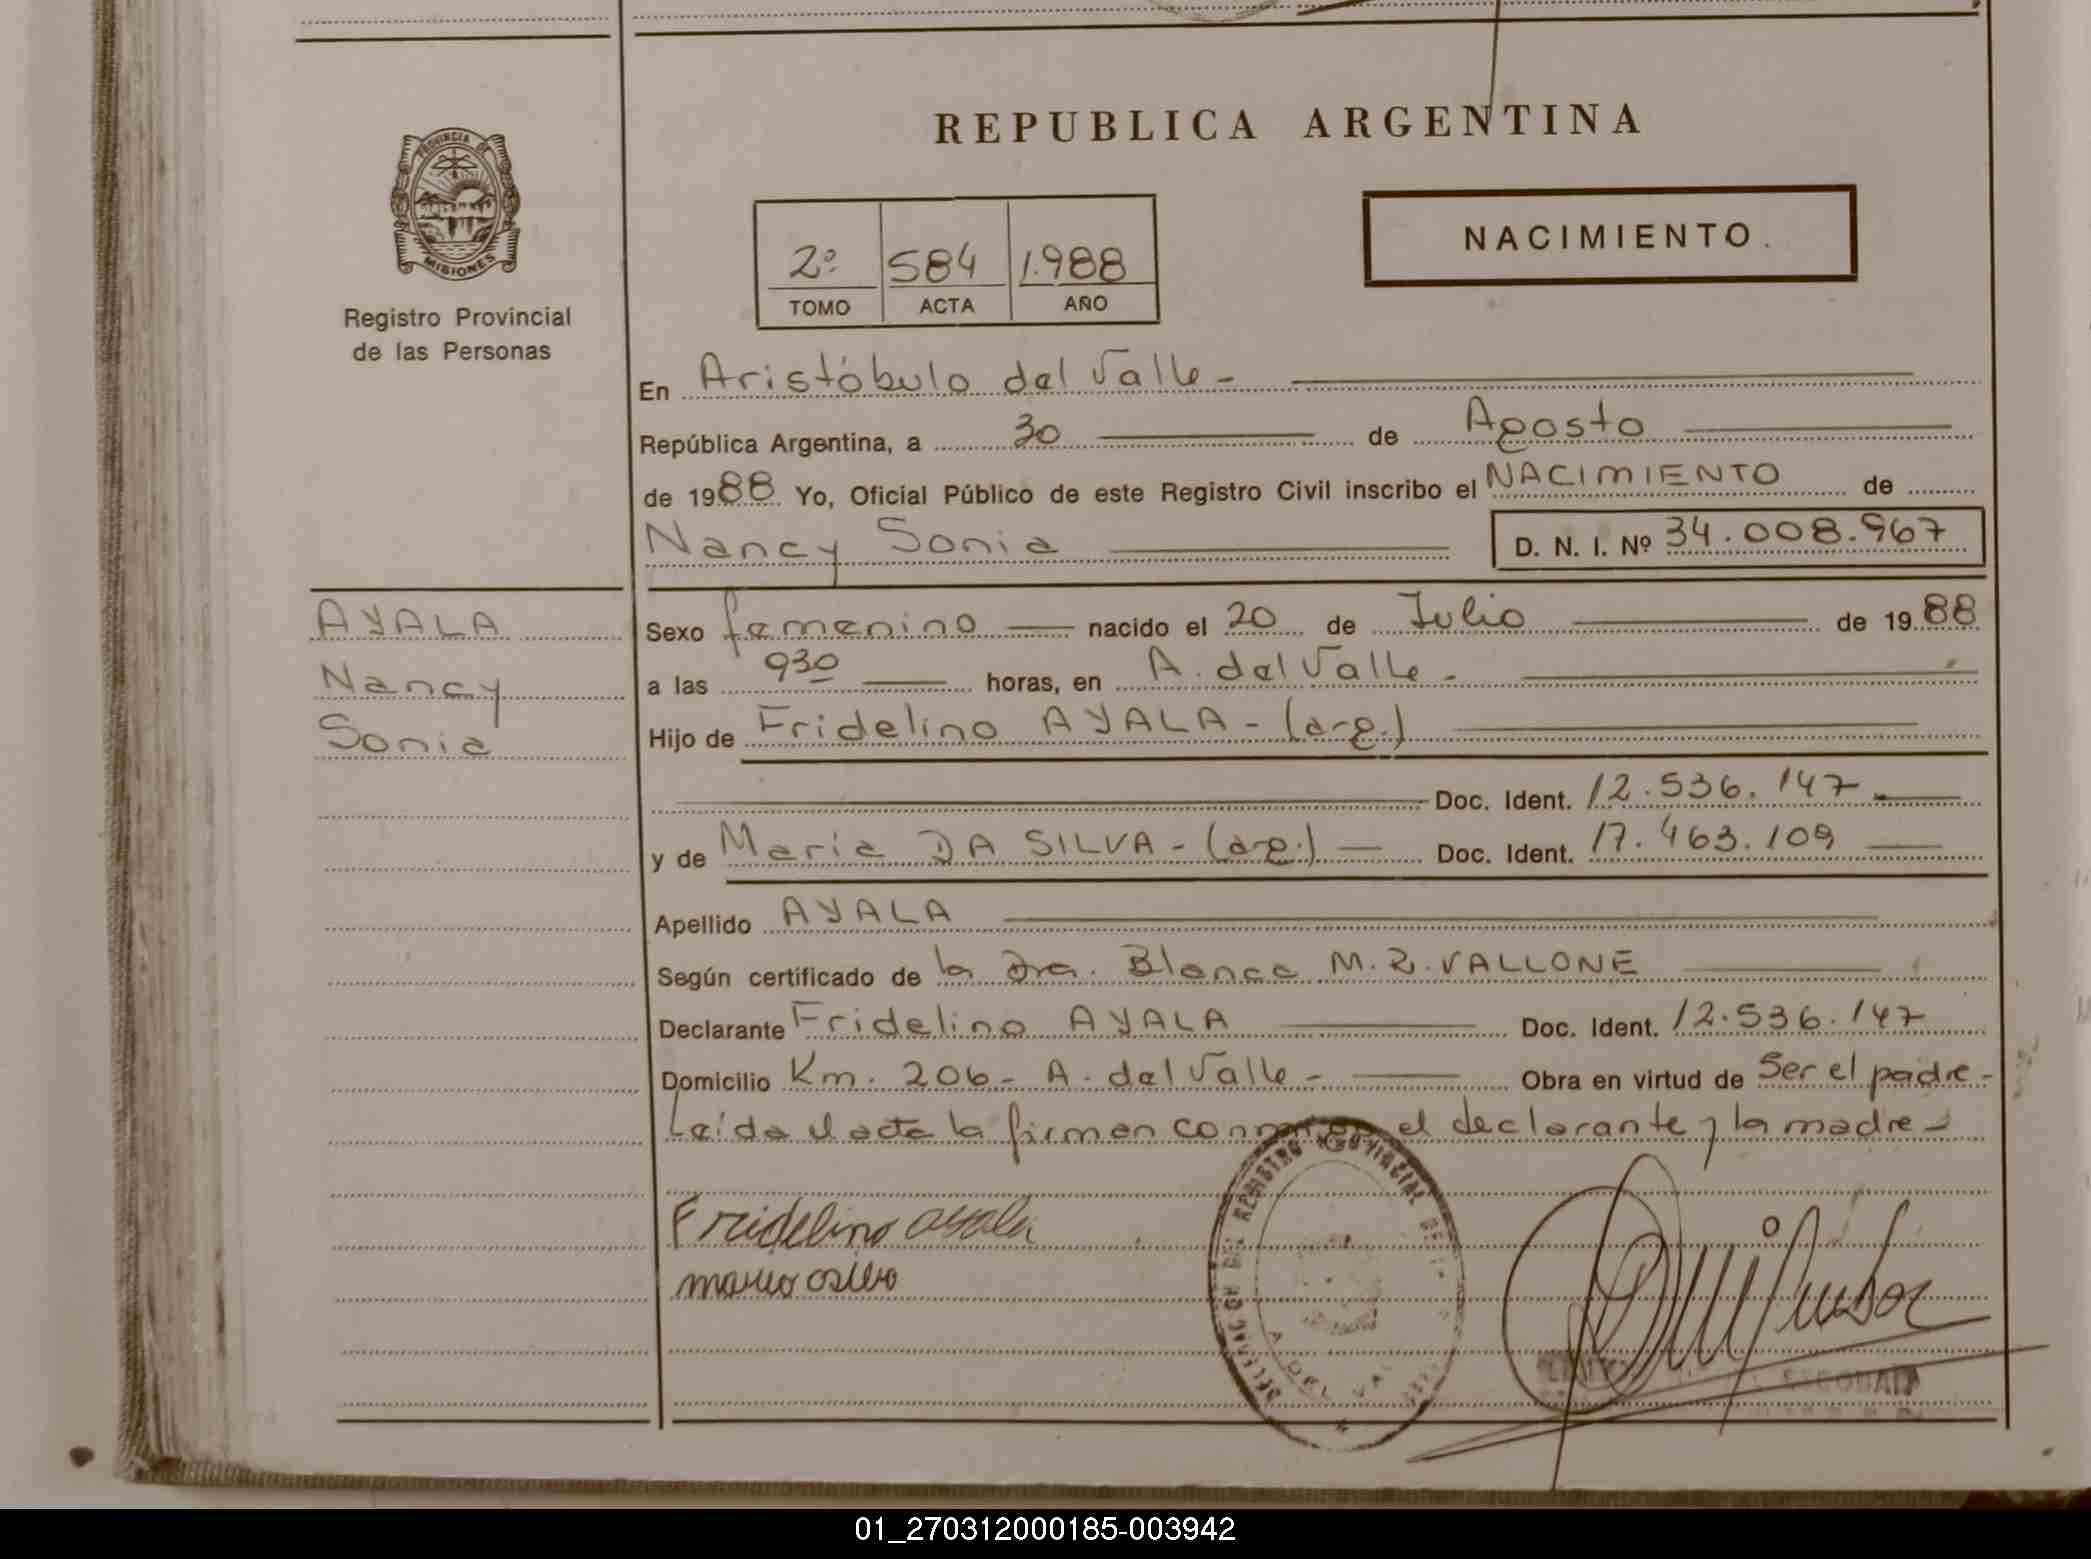 REPUBLICA ARGENTINA
PROVINCIA DE
MISIONES
Registro Provincial
de las Personas
2º 584 1.988
TOMO ACTA AÑO
NACIMIENTO.
En Aristóbulo del Valle -
República Argentina, a 30 de Agosto
de 1988 Yo, Oficial Público de este Registro Civil inscribo el NACIMIENTO de
Nancy Sonia D. N. I. Nº 34.008.967
AYALA
Nancy
Sonia
Sexo femenino nacido el 20 de Julio de 1988
a las 930 horas, en A. del Valle -
Hijo de Fridelino AYALA - (arg.)
Doc. Ident. 12.536.147
y de Maria DA SILVA - (arg.) Doc. Ident. 17.463.109
Apellido AYALA
Según certificado de la Dra. Blanca M. R. VALLONE
Declarante Fridelino AYALA Doc. Ident. 12.536.147
Domicilio Km. 206 - A. del Valle - Obra en virtud de Ser el padre -
Leída el acta la firman conmigo el declarante y la madre -
Fridelino ayala
DELEGACION DEL REGISTRO PROVINCIAL DE
A. DEL VA
ESCOBAR
01_270312000185-003942